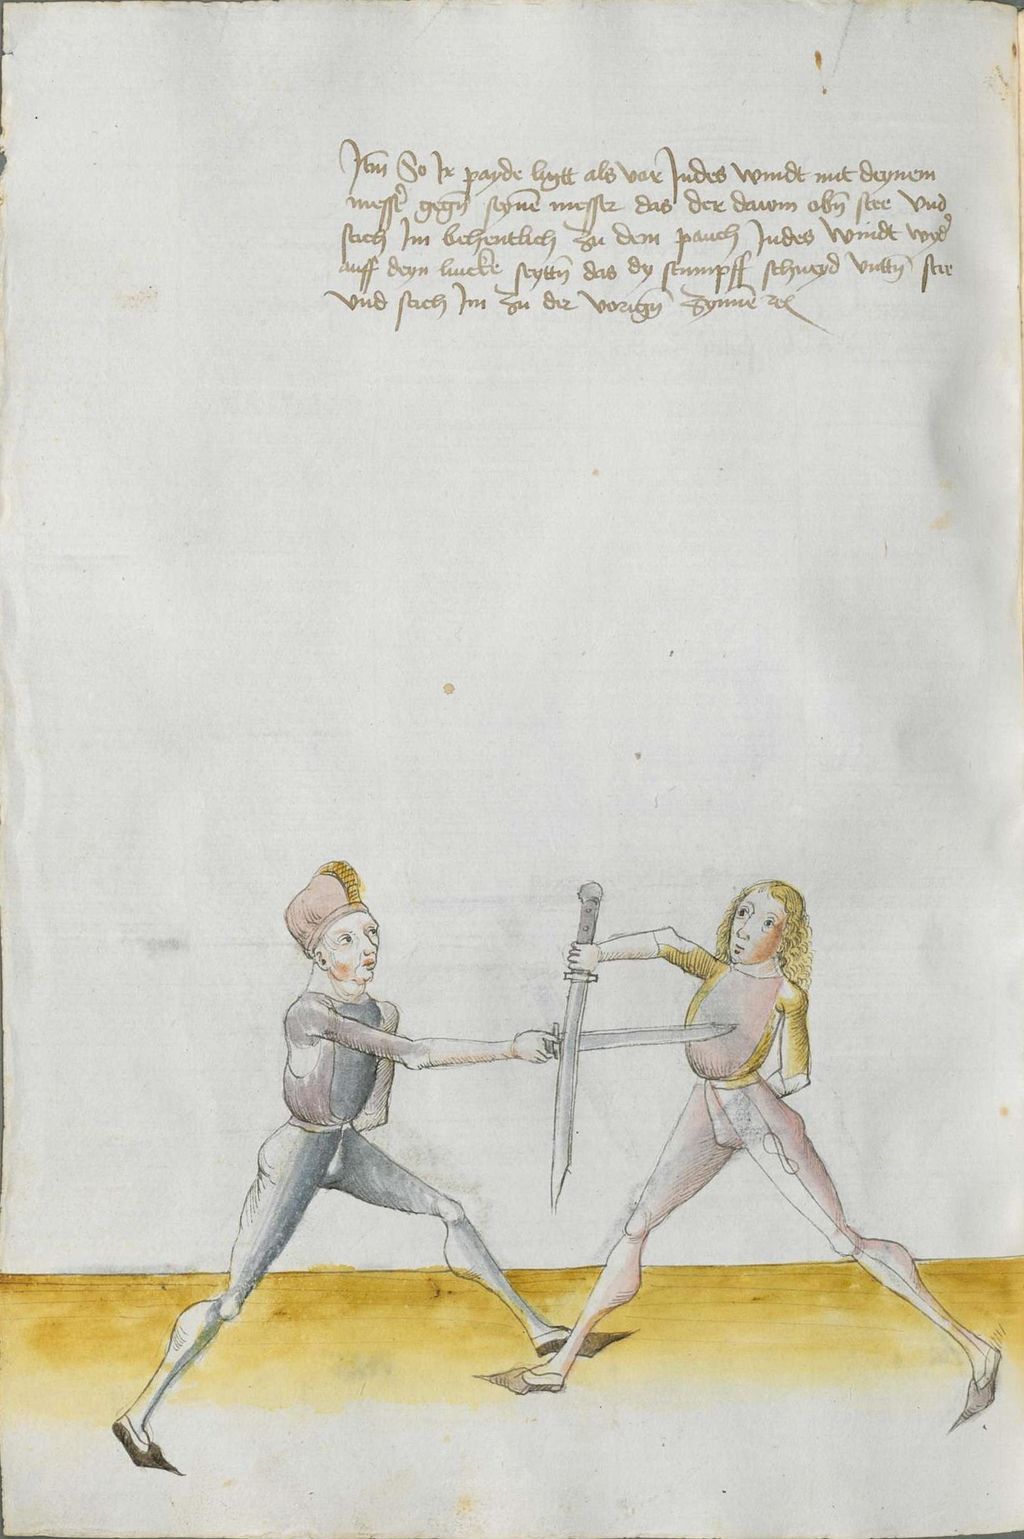 Itm So Ir payde ligtt als vor Indes windt mit deynem
messer gegn seyne messer das der dawm obn stee Vnd
stich Im behentlich zu dem pauch Indes windt wyder
auff deyn lincke seyttn das dy stumpff schneyd vnttn stee
vnd stich Im zu der vorign zynne zc